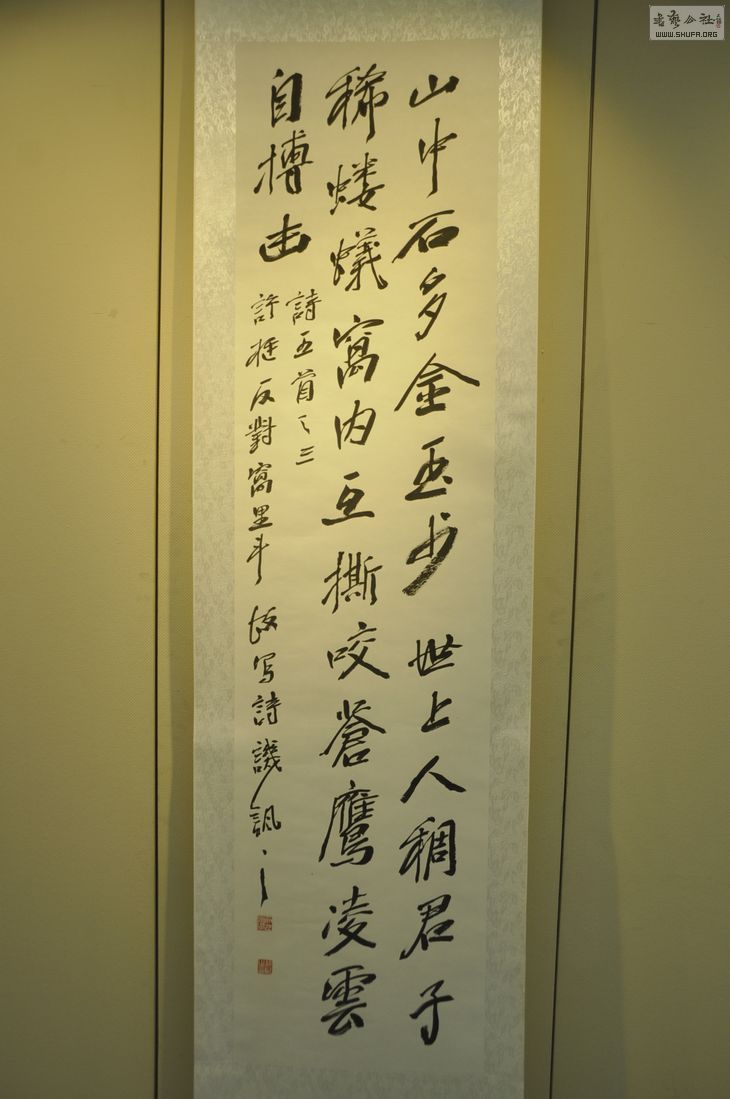 山中石多金玉少世上人稠君子
稀蝼蟻窩内互撕咬蒼鷹凌雲
自搏击
詩五首之三
許挺反對窩里斗故写詩譏諷之
書藝公社
WWW.SHUFA.ORG